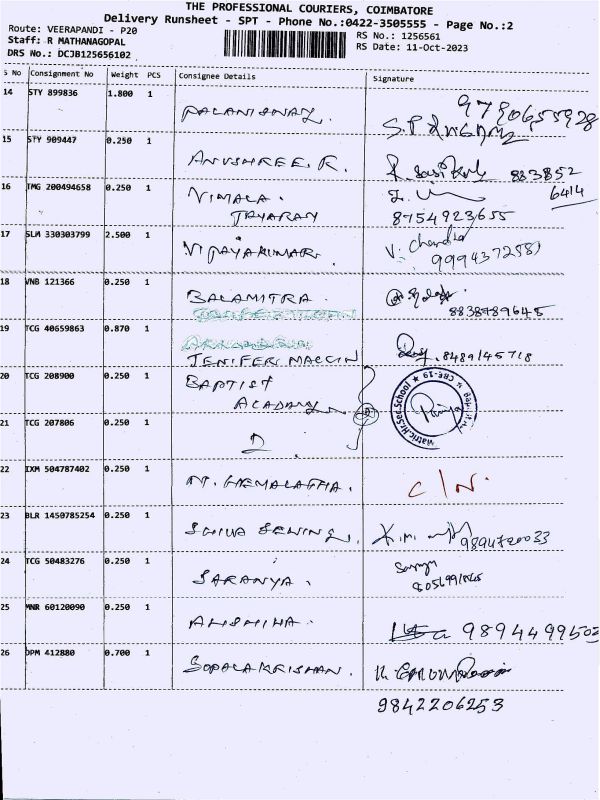 THE PROFESSIONAL COURIERS, COIMBATORE
Delivery Runsheet - SPT - Phone No.:0422-3505555 - Page No.:2
Route: VEERAPANDI - P20
Staff: R MATHANAGOPAL
DRS No.: DCJB125656102
RS No.: 1256561
RS Date: 11-Oct-2023
S No Consignment No Weight PCS Consignee Details Signature
14 STY 899836 1.800 1
15 STY 909447 0.250 1 ANUSHREE.R.
883852
6414
16 TMG 200494658 0.250 1 VIMALA.
JAYARAM 8754923655
17 SLM 330303799 2.500 1 VIJAYAKUMAR V. Chandra
9994372581
18 VNB 121366 0.250 1 BALAMITRA.
8838789645
19 TCG 40659863 0.870 1
JENIFER MACLIN 8489145718
20 TCG 208900 0.250 1 BAPTIST
ACADAMY
CBE-19
Matric.Hr.Sec.School
21 TCG 207806 0.250 1 2
22 IXM 504787402 0.250 1 M. HEMALATHA. C/N.
23 BLR 1450785254 0.250 1 SHIVA SEWING K.M.
9894720033
24 TCG 50483276 0.250 1 SARANYA. Saranya
25 MNR 60120090 0.250 1 9894499502
26 OPM 412880 0.700 1 GOPALAKRISHNAN.
9842206253